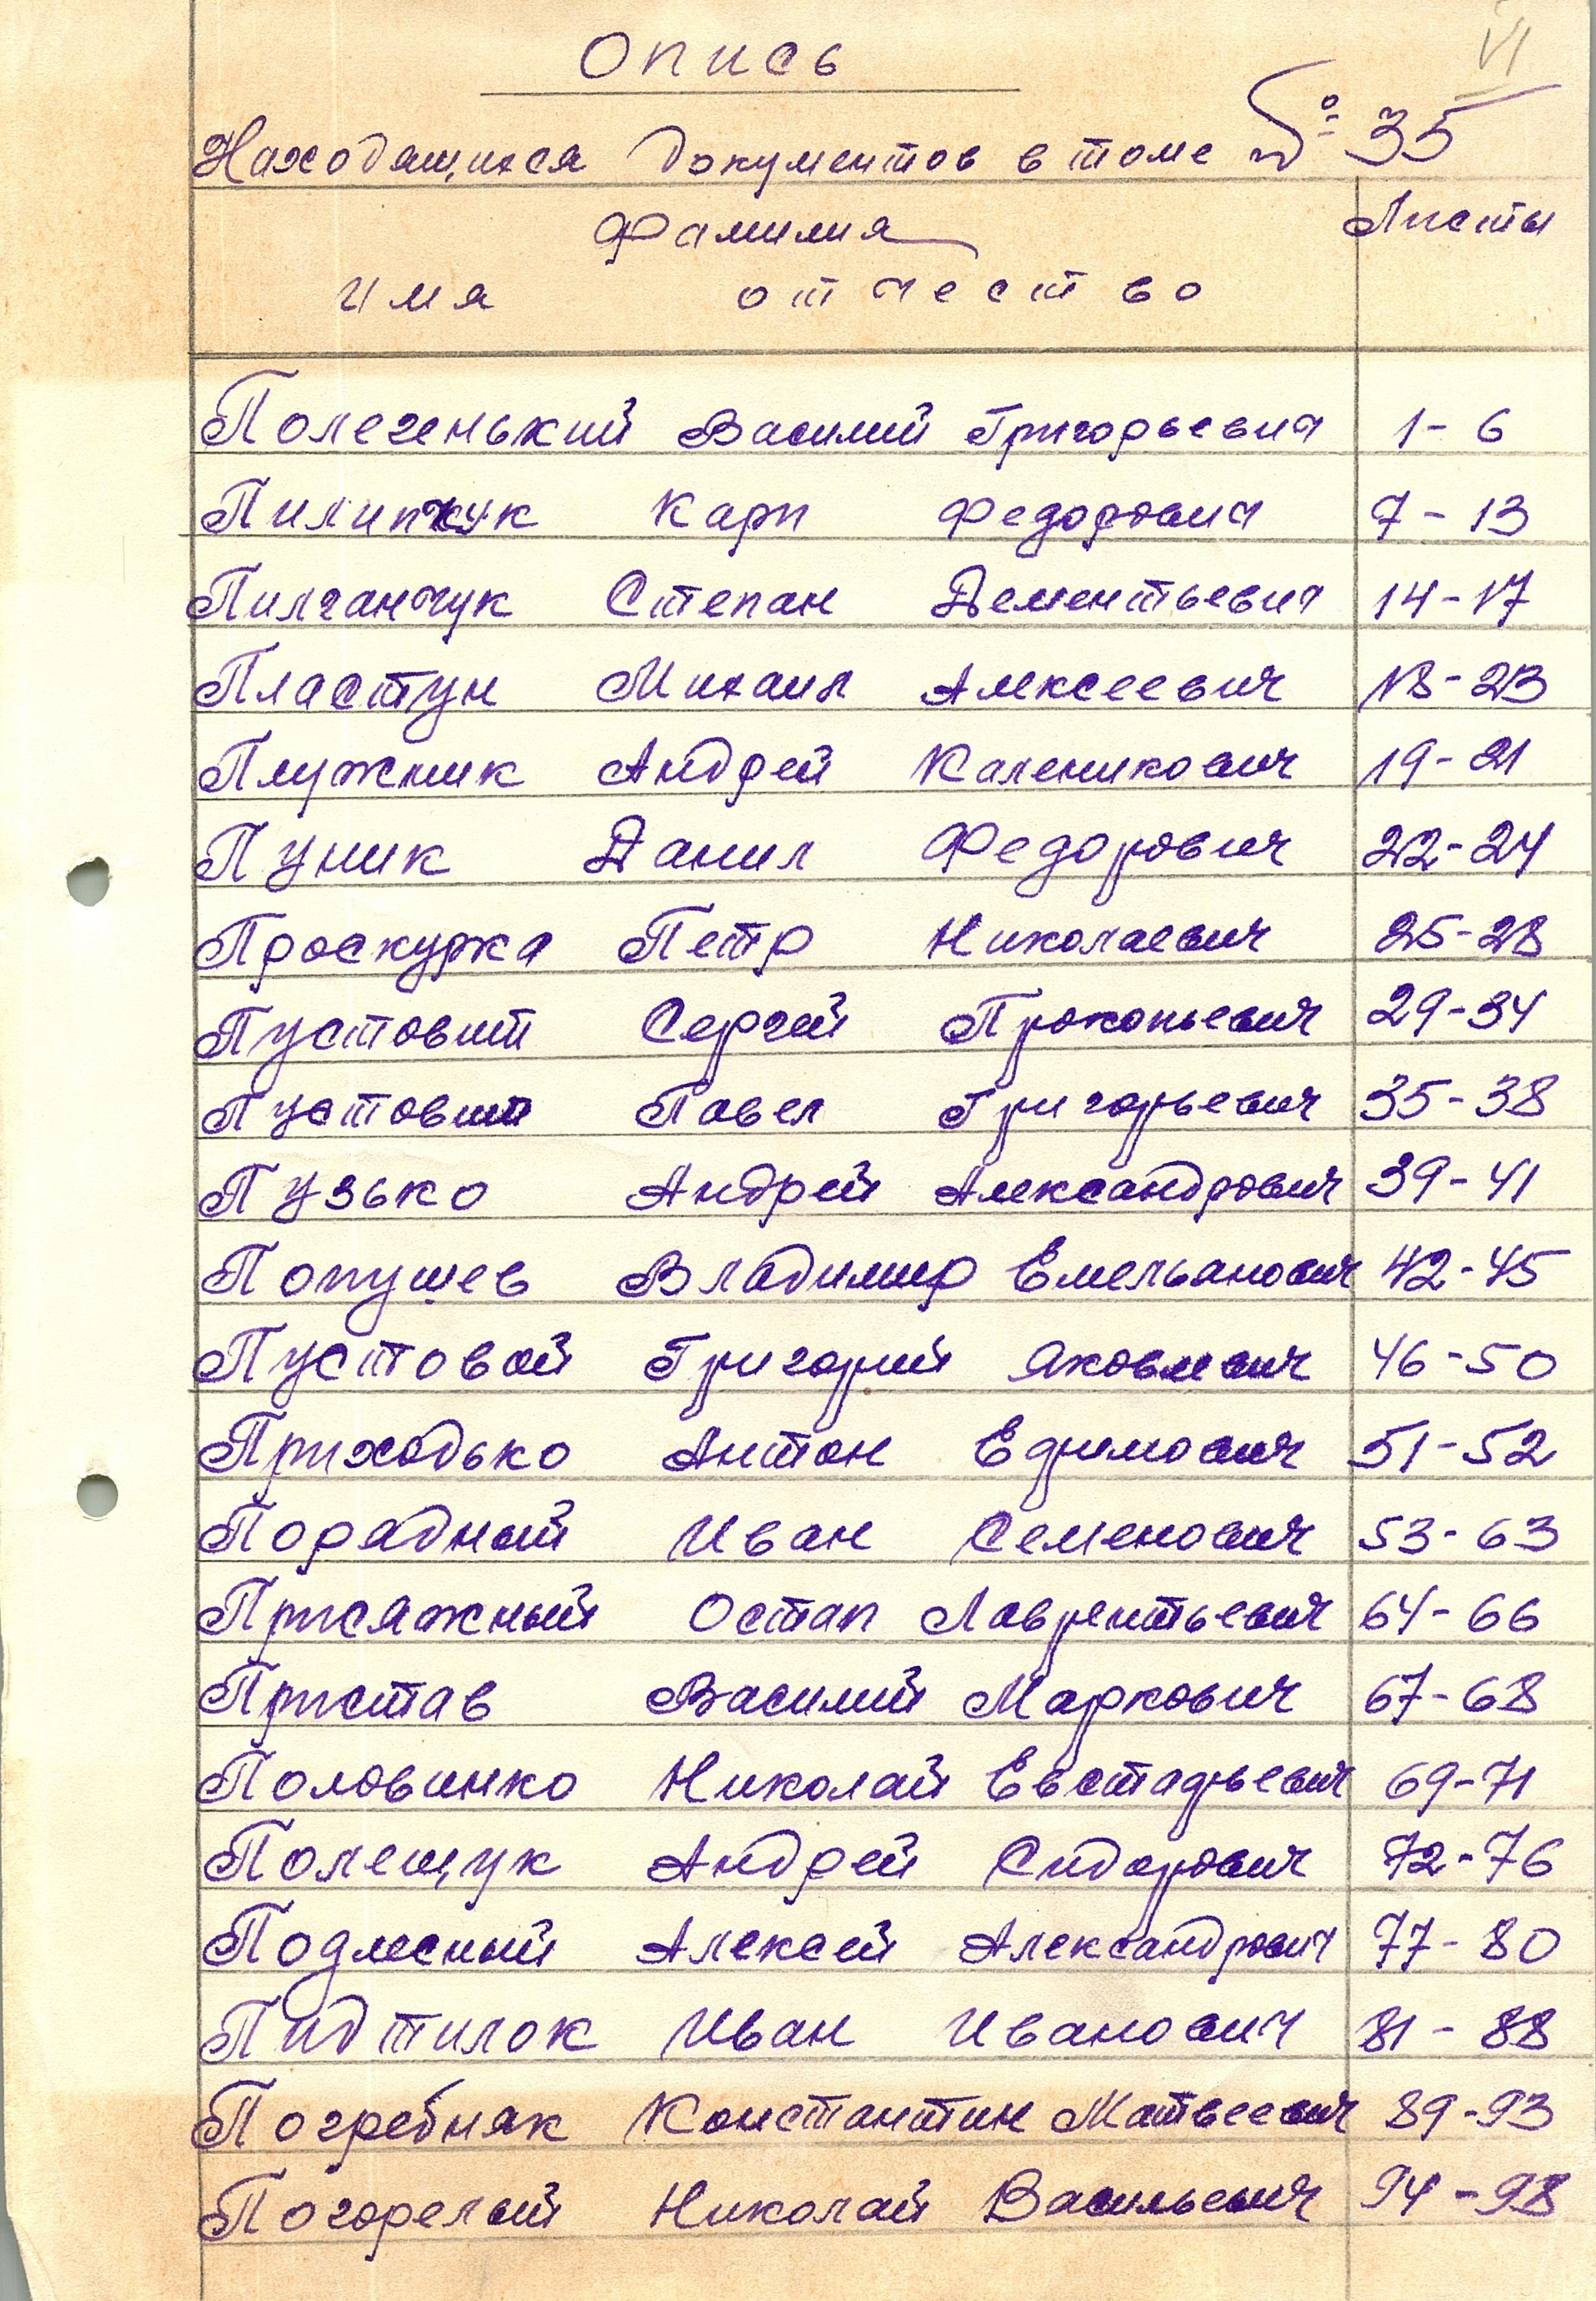 VI
Опись
Находящихся документов в томе № 35
Фамилия Листы
имя отчество
Полегенький Василий Григорьевич 1-6
Пилипчук Карп Федорович 7-13
Пилганчук Степан Дементьевич 14-17
Пластун Михаил Алексеевич 18-23
Плужник Андрей Каленикович 19-21
Пуник Данил Федорович 22-24
Проскурка Петр Николаевич 25-28
Пустовит Сергей Прокопьевич 29-34
Пустовит Павел Григорьевич 35-38
Пузько Андрей Александрович 39-41
Попушев Владимир Емельянович 42-45
Пустовой Григорий Яковлевич 46-50
Приходько Антон Ефимович 51-52
Порадный Иван Семенович 53-63
Присяжный Остап Лаврентьевич 64-66
Пристав Василий Маркович 67-68
Половинко Николай Евстафьевич 69-71
Полещук Андрей Сидорович 72-76
Подлесный Алексей Александрович 77-80
Пидтилок Иван Иванович 81-88
Погребняк Константин Матвеевич 89-93
Погорелый Николай Васильевич 94-98